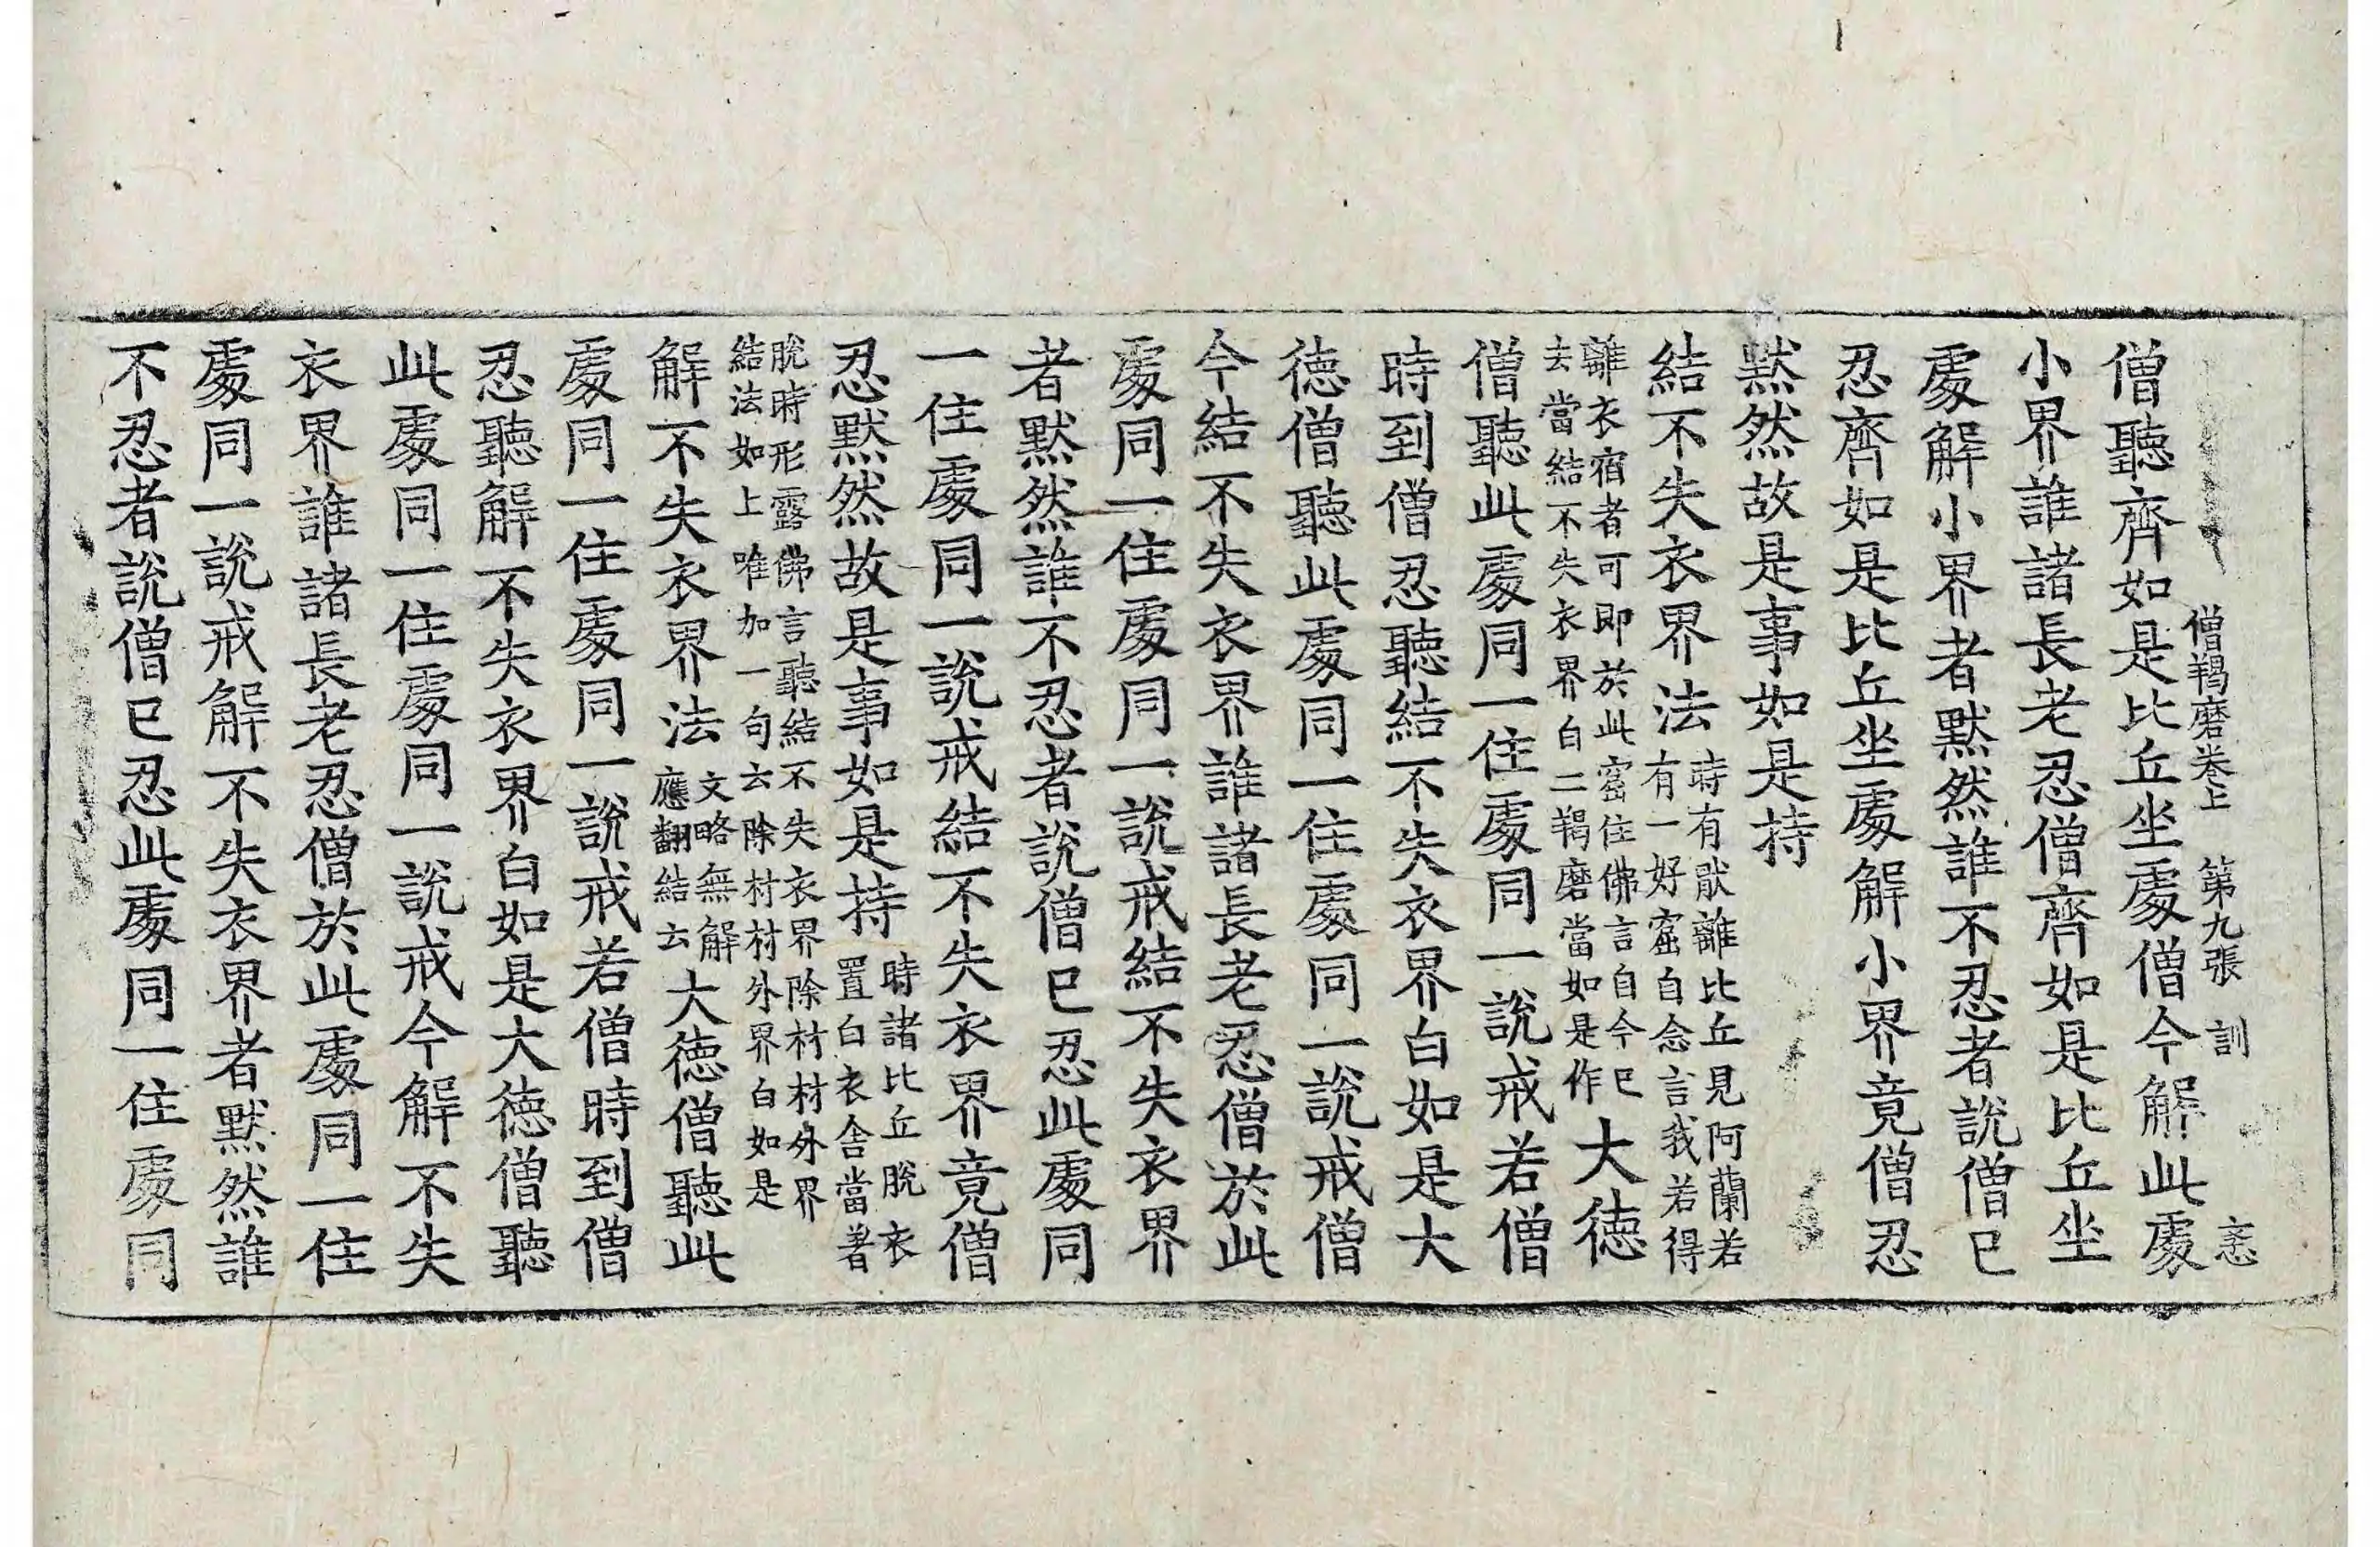 僧羯磨卷上 第九張 訓
僧聽齊如是比丘坐處僧今解此處
小界誰諸長老忍僧齊如是比丘坐
處解小界者默然誰不忍者說僧已
忍齊如是比丘坐處解小界竟僧忍
默然故是事如是持
結不失衣界法
時有厭離比丘見阿蘭若
有一好窟自念言我若得
離衣宿者可即於此窟住佛言自今已
去當結不失衣界白二羯磨當如是作
大德
僧聽此處同一住處同一說戒若僧
時到僧忍聽結不失衣界白如是大
德僧聽此處同一住處同一說戒僧
今結不失衣界誰諸長老忍僧於此
處同一住處同一說戒結不失衣界
者默然誰不忍者說僧已忍此處同
一住處同一說戒結不失衣界竟僧
忍默然故是事如是持
時諸比丘脫衣
置白衣舍當著
脫時形露佛言聽結不失衣界除村村外界
結法如上唯加一句云除村村外界白如是
解不失衣界法
文略無解
應翻結云
大德僧聽此
處同一住處同一說戒若僧時到僧
忍聽解不失衣界白如是大德僧聽
此處同一住處同一說戒今解不失
衣界誰諸長老忍僧於此處同一住
處同一說戒解不失衣界者默然誰
不忍者說僧已忍此處同一住處同